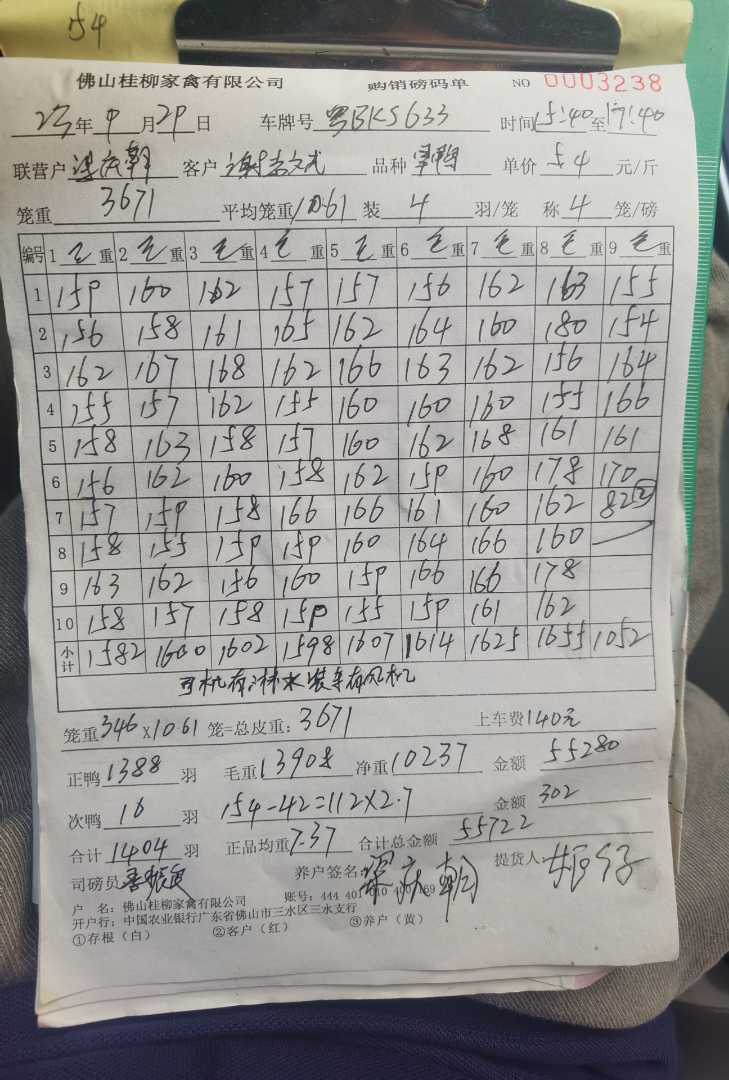 54
佛山桂柳家禽有限公司 购销磅码单 NO 0003238
23年9月29日 车牌号 粤BKS633 时间15:40至17:40
联营户 梁庆朝 客户 谢 品种 单价 5.4 元/斤
笼重 3671 平均笼重10.61 装 4 羽/笼 称 4 笼/磅
编号 1 毛 重 2 毛 重 3 毛 重 4 毛 重 5 毛 重 6 毛 重 7 毛 重 8 毛 重 9 毛 重
1 159 160 162 157 157 156 162 163 155
2 156 158 161 165 162 164 160 180 154
3 162 167 168 162 166 163 162 156 164
4 155 157 162 155 160 160 160 155 166
5 158 163 158 157 160 162 168 161 161
6 156 162 160 158 162 159 160 178 170
7 157 159 158 166 166 161 160 162 82②
8 158 155 159 159 160 164 166 160 —
9 163 162 156 160 159 166 166 178
10 158 157 158 159 155 159 161 162
小计 1582 1600 1602 1598 1607 1614 1625 1655 1052
司机有淋水装车有风机
笼重346×10.61 笼=总皮重：3671 上车费140元
正鸭1388羽 毛重13908 净重10237 金额 55280
次鸭 16 羽 154-42=112×2.7 金额 302
合计1404羽 正品均重7.37 合计总金额 55722
司磅员 养户签名：梁庆朝 提货人
户 名：佛山桂柳家禽有限公司 账号：444 401
开户行：中国农业银行广东省佛山市三水区三水支行
①存根（白） ②客户（红） ③养户（黄）